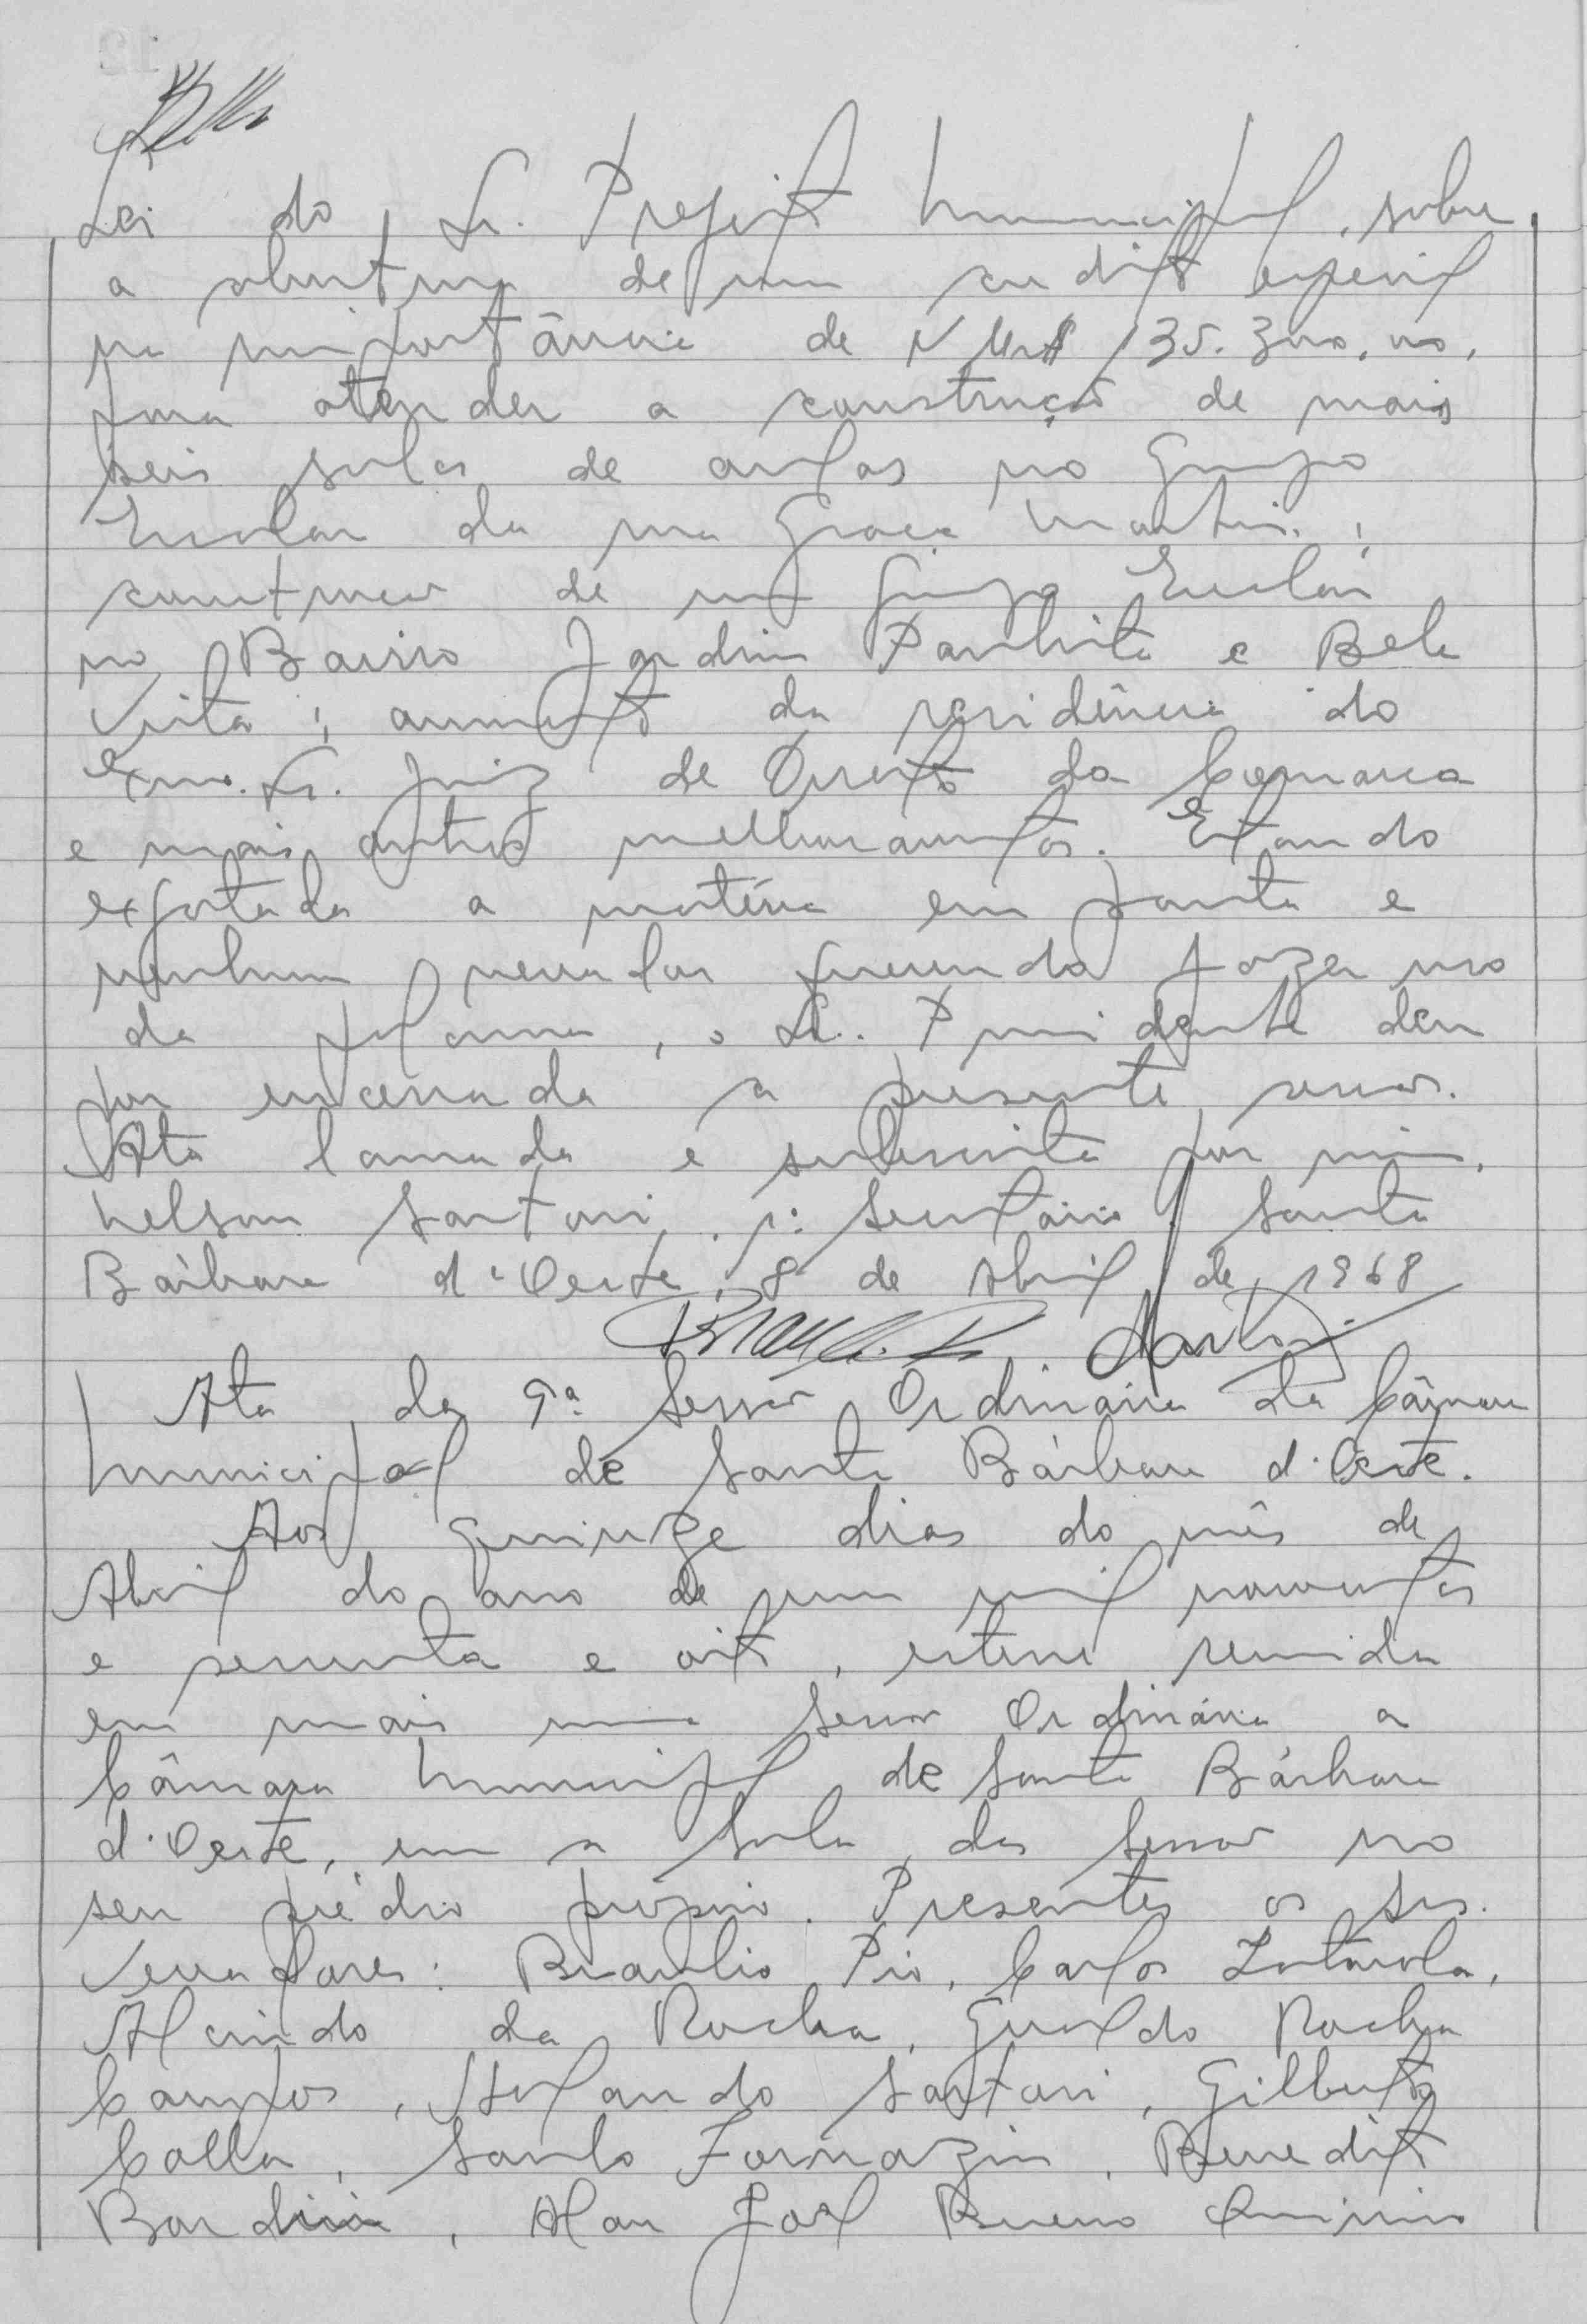 Lei do Sr. Prefeito Municipal, sobre
a abertura de um credito especial
na importância de NCr$ 135.300,00,
para atender a construção de mais
seis salas de aulas no Grupo
Escolar da rua Graça Martins;
construção de um Grupo Escolar
no Bairro Jardim Panhita e Bela
Vista; aumento da residência do
Exmo. Sr. Juiz de Direito da Comarca
e mais outros melhoramentos. Estando
exgotada a matéria em pauta e
nenhum vereador querendo fazer uso
da palavra, o Sr. Presidente deu
por encerrada a presente sessão.
Ata lavrada e subscrita por mim,
Nelson Sartori, 1º Secretário. Santa
Bárbara d'Oeste, 8 de Abril de 1968
Ata da 9ª Sessão Ordinária da Câmara
Municipal de Santa Bárbara d'Oeste.
Aos quinze dias do mês de
Abril do ano de um mil novecentos
e sessenta e oito, esteve reunida
em mais uma Sessão Ordinária a
Câmara Municipal de Santa Bárbara
d'Oeste, em a Sala das Sessões no
seu prédio próprio. Presentes os Srs.
Vereadores: Braulio Pio, Carlos
Alcindo da Rocha, Geraldo Rocha
Campos, Sartori, Gilberto
Calla, Santo Fornazin, Benedito
Alan Joel Bueno